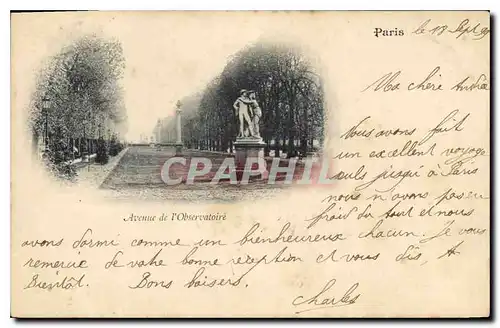 Paris le 13 Sept 99
Ma chère Andréa
Vous avons fait
un excellent voyage
seuls jusqu'à Paris
nous n'avons pas eu
froid du tout et nous
CPARHAMA
Avenue de l'Observatoire
avons dormi comme un bienheureux chacun. Je vous
remercie de votre bonne réception et vous dis, A
Bientôt. Bons baisers.
Charles